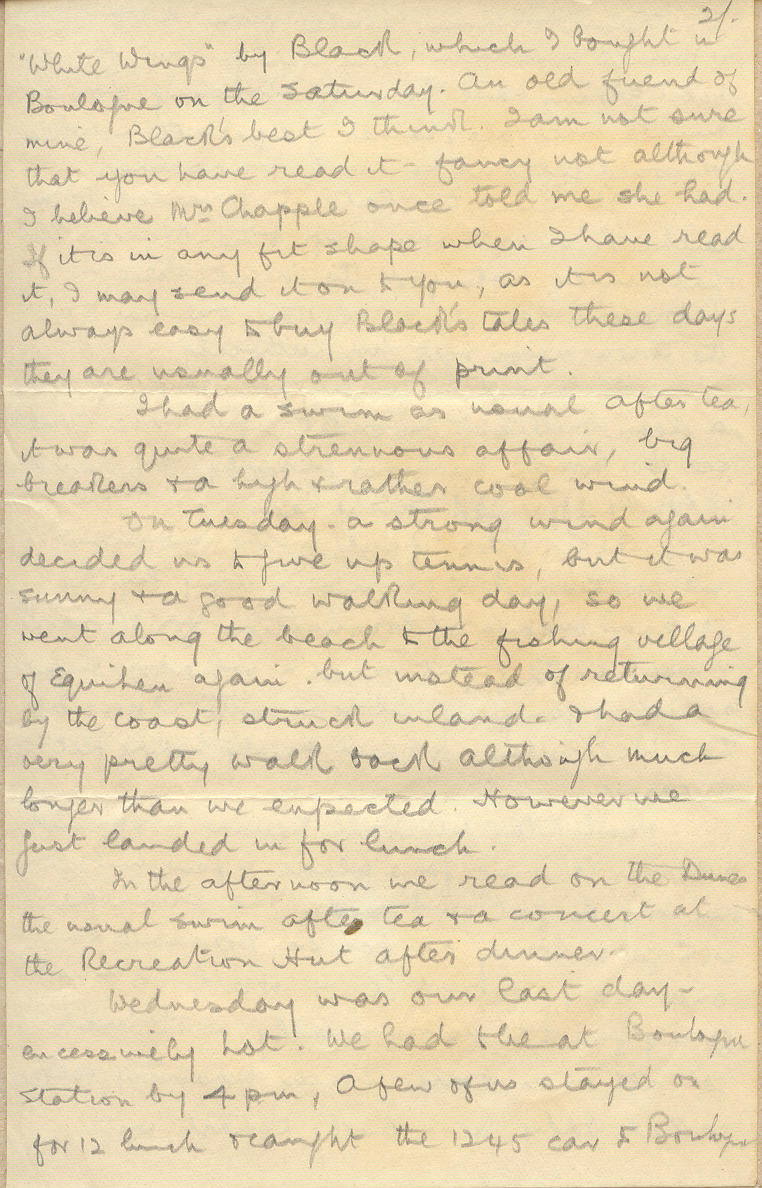 2/.
"White Wings" by Black, which I bought in
Boulogne on the Saturday. An old friend of
mine, Black's best I think. I am not sure
that you have read it - fancy not although
I believe Mrs Chapple once told me she had.
If it is in any fit shape when I have read
it, I may send it on to you, as it is not
always easy to buy Black's tales these days
they are usually out of print.
I had a swim as usual after tea,
it was quite a strenuous affair, big
breakers & a high & rather cool wind.
On Tuesday. a strong wind again
decided us to give up tennis, but it was
sunny & a good walking day, so we
went along the beach to the fishing village
of Equihen again. but instead of returning
by the coast, struck inland. I had a
very pretty walk back although much
longer than we expected. However we
just landed in for lunch.
In the afternoon we read on the Dunes
the usual swim after tea & a concert at
the Recreation Hut after dinner.
Wednesday was our last day -
excessively hot. We had to be at Boulogne
Station by 4 pm, A few of us stayed on
for 12 lunch & caught the 1245 car to Boulogne